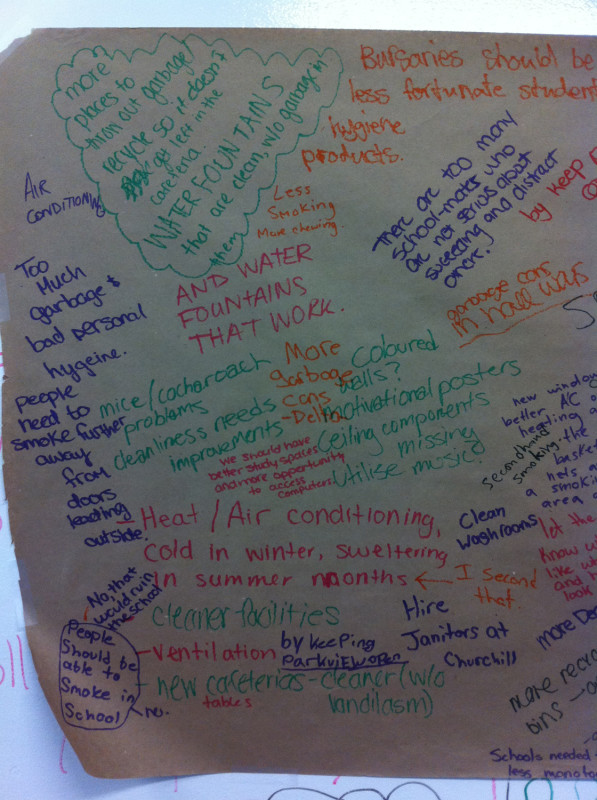 more
places to
throw out garbage/
recycle so it doesn't
get left in the
cafeteria.
WATER FOUNTAINS
that are clean, w/o garbage in
them
Bursaries should be
less fortunate student
hygiene
products.
Less
Smoking
More chewing.
There are too many
school-mates who
are not serious about
succeeding and distract
others.
by keep
AIR
CONDITIONING
Too
Much
garbage &
bad personal
hygeine.
AND WATER
FOUNTAINS
THAT WORK.
garbage cans
in hall ways
people
need to
smoke further
away
from
doors
leading
outside.
mice/cocharoach
problems
cleanliness needs
improvements
More
garbage
cans
-Delta
coloured
walls?
motivational posters
ceiling components
missing
Utilise music?
we should have
better study spaces
and more opportunity
to access
computers
new window
better AC
heating
Second hand
smoking.
the
basket
nets
a smoking
area
Clean
washrooms
- Heat / Air conditioning,
cold in winter, sweltering
in summer months
← I second
that.
let the
know
like
and
look
No, that
would ruin
the school
People
Should be
able to
Smoke in
School
no.
cleaner facilities
- Ventilation
by keeping
ParkviEW OPEN
Hire
Janitors at
Churchill
- new cafeterias - cleaner (w/o
tables
landilasm)
more
more
bins
Schools needed
less